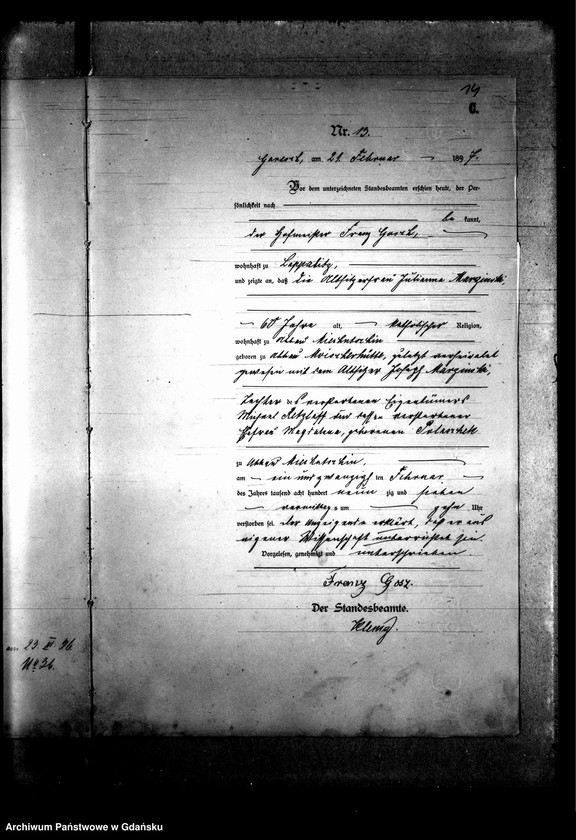 14
C.
Nr. 13.
am 21. Februar 1897.
Vor dem unterzeichneten Standesbeamten erschien heute, der Per-
sönlichkeit nach
be kannt,
der Hofmeister Franz
wohnhaft zu
und zeigte an, daß die Altsitzerfrau Julianna Marzinski,
60 Jahre alt, katholischer Religion,
wohnhaft zu Abbau
geboren zu Abbau zuletzt verheiratet
gewesen mit dem Altsitzer Joseph Marzinski,
Tochter des verstorbenen Eigentümers
Michael Retzlaff und dessen verstorbener
Ehefrau Magdalena, geborenen
zu Abbau
am ein und zwanzigsten Februar
des Jahres tausend acht hundert neun zig und sieben
vormittags um zehn Uhr
verstorben sei. Der Anzeigende erklärt, daß er aus
eigener Wissenschaft unterrichtet sei.
Vorgelesen, genehmigt und unterschrieben
Franz Gosz.
Der Standesbeamte.
am 23. XI. 96.
No 36.
Archiwum Państwowe w Gdańsku